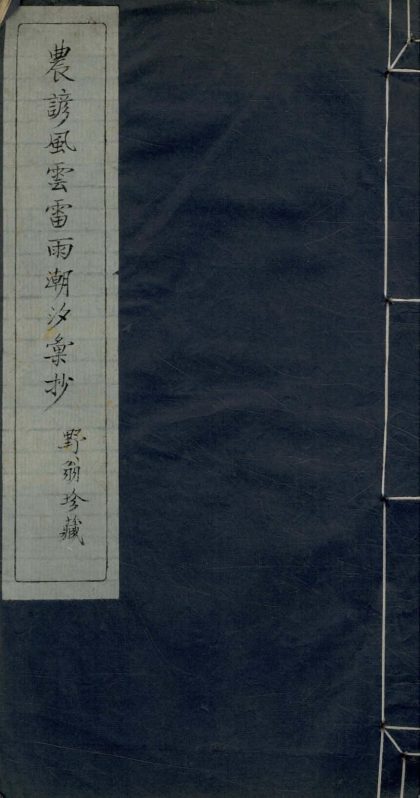 農諺風雲雷雨潮汐彙抄
野翁珍藏